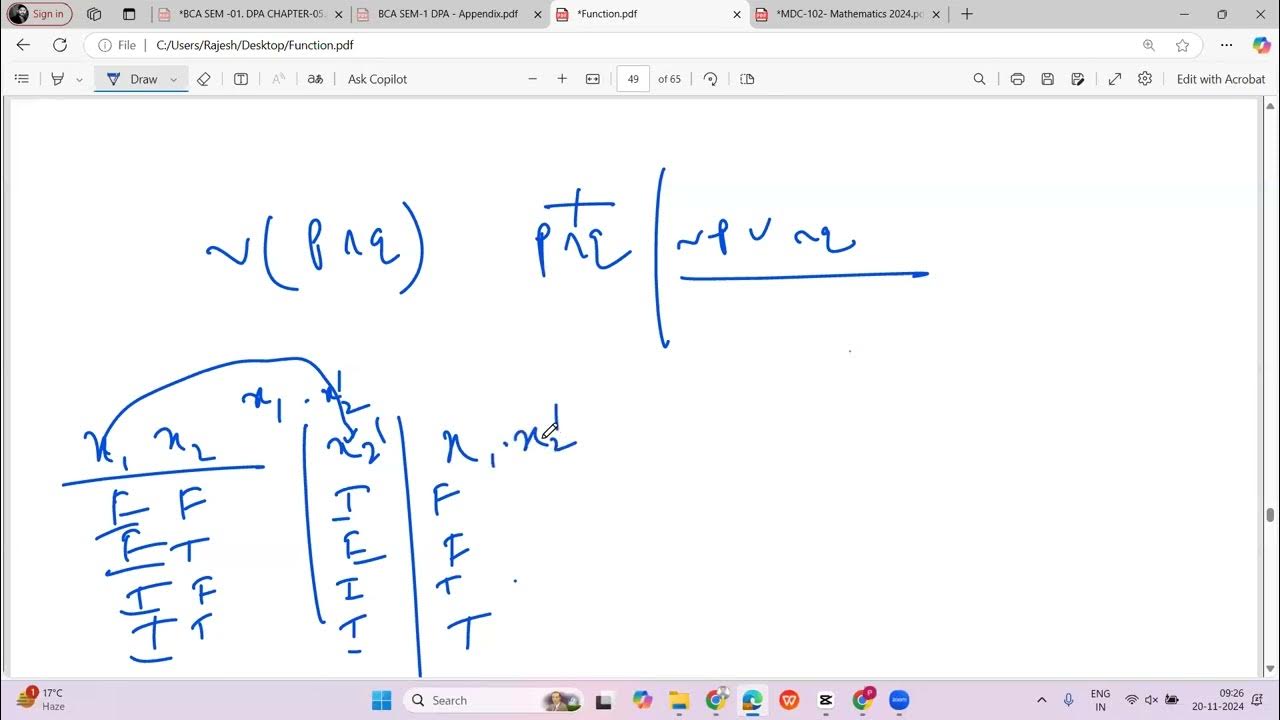 Sign in
*BCA SEM -01. DPA CHAPTER-05.
BCA SEM-1 DPA - Appendix.pdf
*Function.pdf
*MDC-102- Mathematics 2024.pd
File C:/Users/Rajesh/Desktop/Function.pdf
Draw Ask Copilot 49 of 65 Edit with Acrobat
~(p ∧ q) p ∧ q ~p ∨ ~q
x₁ . x₂'
x₁ x₂ x₂' x₁ . x₂'
F F T F
F T F F
T F T T
T T T T
1 17°C
Haze
Search
zoom
ENG
IN
09:26
20-11-2024